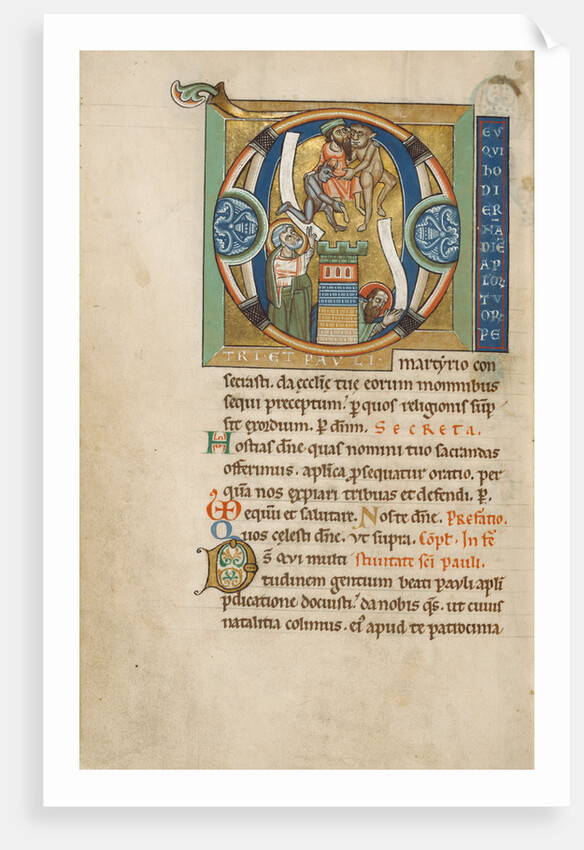 EVS
QVI
HO
DI
ER
NA
DIĒ
APLOR
TVOR
PE
TRI ET PAVLI
martyrio con
secrasti. da ecclie tue eorum in omnibus
sequi preceptum. p quos religionis sūp
sit exordium. P dnm. Secreta.
Hostias dne quas nomini tuo sacrandas
offerimus. aplica psequatur oratio. per
quā nos expiari tribuas et defendi. P.
equū et salutare. Nos te dne. Prefatio.
Quos celesti dne. ut supra. Cōpl. In fe
Ds qui multi stiuitate sci pauli.
tudinem gentium beati pauli apli
pdicatione docuisti. da nobis qs. ut cuius
natalitia colimus. ei apud te patrocinia